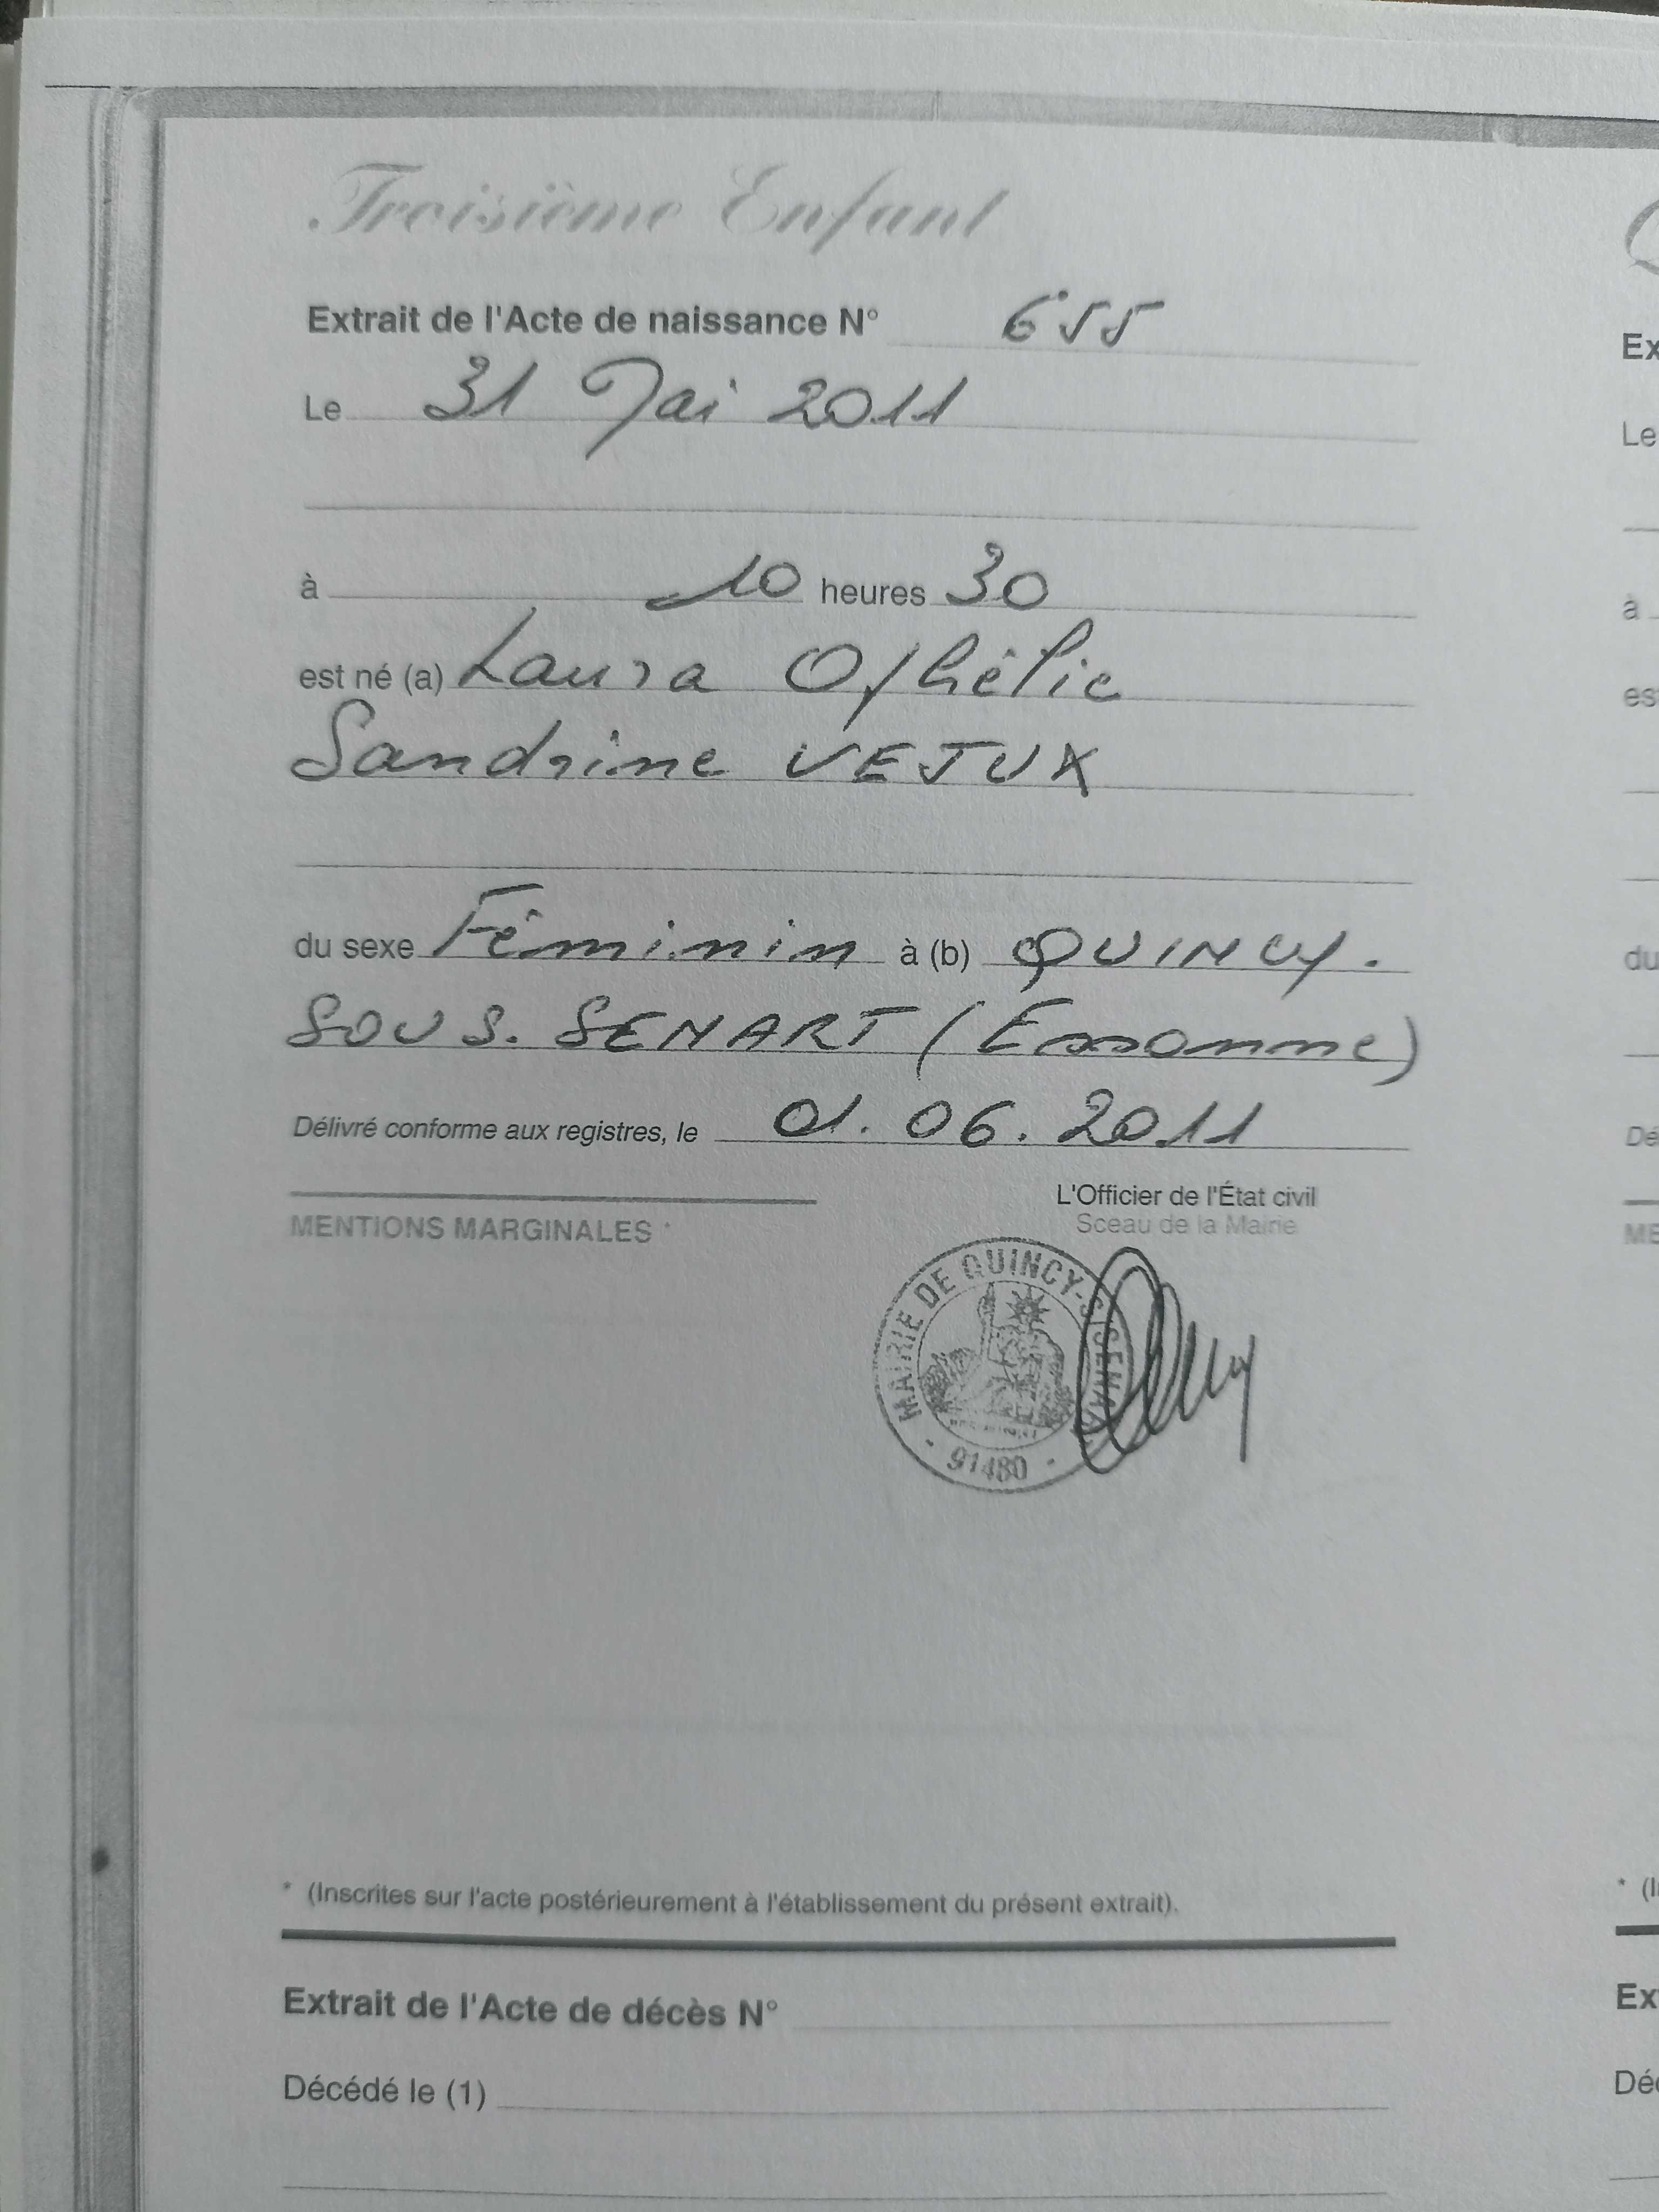 Troisième Enfant
Extrait de l'Acte de naissance N° 655
Le 31 Mai 2011
à 10 heures 30
est né (a) Laura Ophélie
Sandrine VEJUX
du sexe Féminin à (b) QUINCY.
SOUS. SENART (Essonne)
Délivré conforme aux registres, le 01. 06. 2011
L'Officier de l'État civil
Sceau de la Mairie
MENTIONS MARGINALES *
MAIRIE DE QUINCY-S/SENART
- 91480 -
* (Inscrites sur l'acte postérieurement à l'établissement du présent extrait).
Extrait de l'Acte de décès N°
Décédé le (1)
Ex
Le
à
es
du
Dé
ME
* (I
Ex
Déc